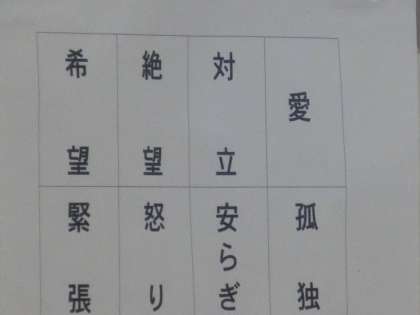 愛
対立
絶望
希望
孤独
安らぎ
怒り
緊張